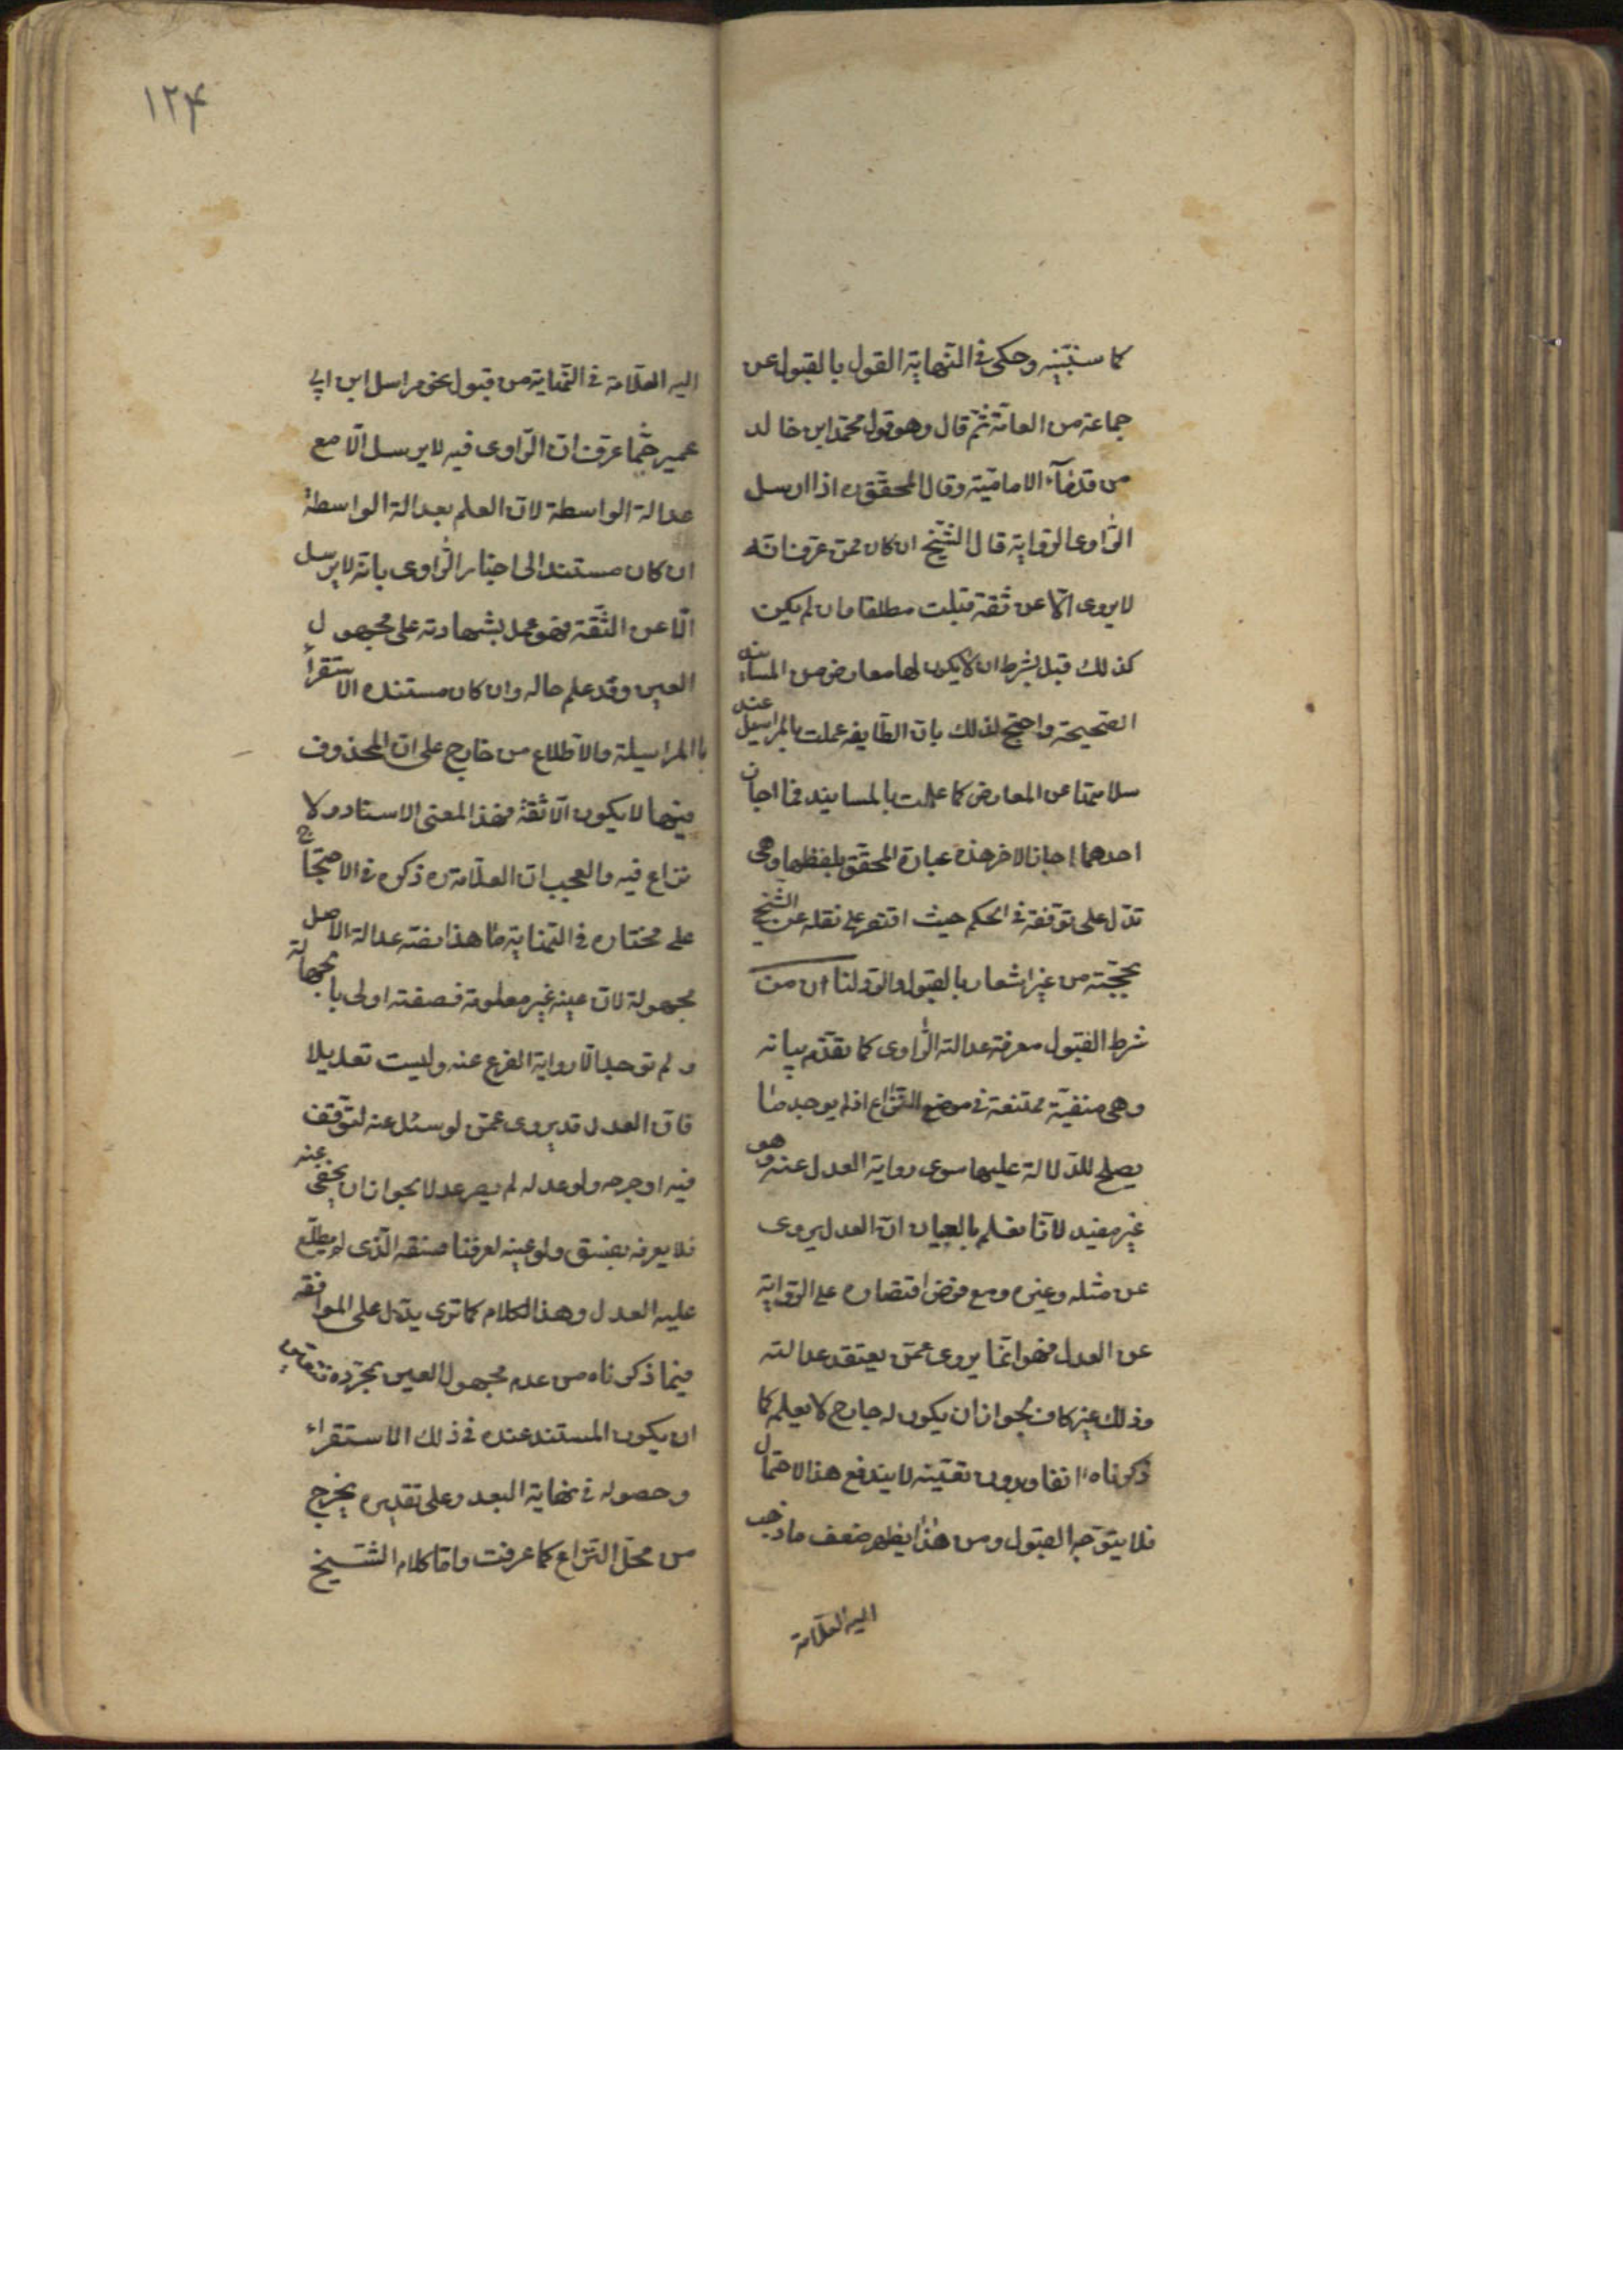 كما سنبينه وحكى فى النهاية القول بالقبول عن
جماعة من العامة ثم قال وهو قول محمد ابن خالد
من قدماء الامامية وقال المحقق ره اذا ارسل
الراوى الرواية قال الشيخ ان كان ممن عرف انه
لا يروى الا عن ثقة قبلت مطلقا وان لم يكن
كذلك قبل بشرط ان لا يكون لها معارض من المسانيد
الصحيحة واحتج لذلك بان الطايفه عملت بالمراسيل عند
سلامتها عن المعارض كما عملت بالمسانيد فما اجاز
احدهما اجاز الاخر هذه عبارة المحقق بلفظها وهى
تدل على توقفه فى الحكم حيث اقتصر على نقله عن الشيخ
بحجته من غير اشعار بالقبول والرد لنا ان من
شرط القبول معرفة عدالته الراوى كما تقدم بيانه
وهى منفية ممتنعة فى موضع النزاع اذ لم يوجد ما
يصلح للدلالة عليها سوى رواية العدل عنه وهو
غير مفيد لانا نعلم بالعيان ان العدل يروى
عن مثله وغيره ومع فرض اقتصاره على الرواية
عن العدل فهو انما يروى عمن يعتقد عدالته
وذلك غير كاف لجواز ان يكون له جارح لا يعلم كما
ذكرناه انفا وبدون تعيينه لا يندفع هذا الاحتمال
فلا يتوجه القبول ومن هذا يظهر ضعف ما ذهب
اليه العلامة
۱۲۴
اليه العلامة فى النهاية من قبول نحو مراسل ابن ابى
عمير مما عرف ان الراوى فيه لا يرسل الا مع
عدالة الواسطة لان العلم بعدالة الواسطة
ان كان مستندا الى اخبار الراوى بانه لا يرسل
الا عن الثقة فهو عمل بشهادته على مجهول
العين وقد علم حاله وان كان مستنده الاستقرأ
با المراسيلة والاطلاع من خارج على ان المحذوف
فيها لا يكون الا ثقة فهذا المعنى الاسناد ولا
نزاع فيه والعجب ان العلامة ره ذكره فى الاحتجاج
على مختاره فى النهاية ما هذا صفته عدالة الاصل
مجهولة لان عينه غير معلومة فصفته اولى بالجهالة
ولم توجد الا رواية الفرع عنه وليست تعديلا
فان العدل قد يروى عمن لو سئل عنه لتوقف
فيه او جرحه ولو عدله لم يصر عدلا لجواز ان يخفى عنه
فلا يعرفه بفسق ولو عينه لعرفنا فسقه الذى لم يطلع
عليه العدل وهذا الكلام كما ترى يدل على الموافقه
فيما ذكرناه من عدم مجهول العين بمجرده
ان يكون المستند عنده فى ذلك الاستقراء
وحصوله فى نهاية البعد وعلى تقديره يخرج
من محل النزاع كما عرفت واما كلام الشيخ